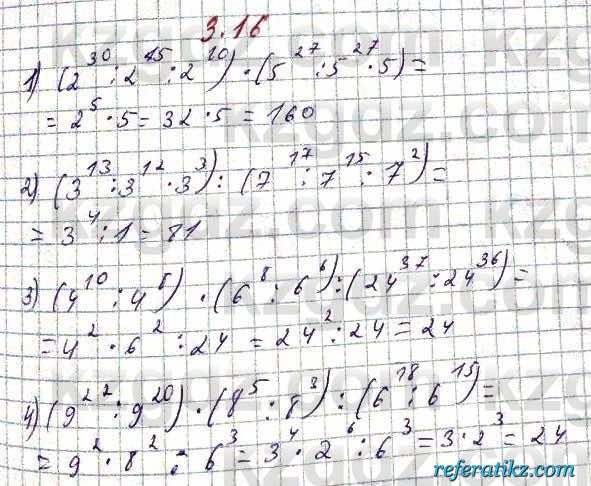 3.16
1) (2³⁰ : 2¹⁵ : 2¹⁰) · (5²⁷ : 5²⁷ · 5) =
= 2⁵ · 5 = 32 · 5 = 160
2) (3¹³ : 3¹² · 3³) : (7¹⁷ : 7¹⁵ : 7²) =
= 3⁴ : 1 = 81
3) (4¹⁰ : 4⁸) · (6⁸ : 6⁶) : (24³⁷ : 24³⁶) =
= 4² · 6² : 24 = 24² : 24 = 24
4) (9²² : 9²⁰) · (8⁵ : 8³) : (6¹⁸ : 6¹⁵) =
= 9² · 8² : 6³ = 3⁴ · 2⁶ : 6³ = 3 · 2³ = 24
referatikz.com